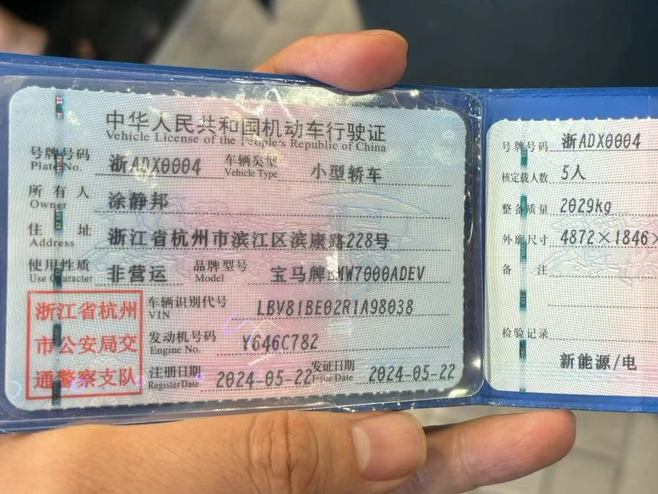 中华人民共和国机动车行驶证
Vehicle License of the People's Republic of China
号牌号码 浙ADX0004 车辆类型 小型轿车
Plate No. Vehicle Type
所有人 涂静邦
Owner
住址 浙江省杭州市滨江区滨康路228号
Address
使用性质 非营运 品牌型号 宝马牌BMW7000ADEV
Use Character Model
浙江省杭州
市公安局交
通警察支队
车辆识别代号 LBV81BE02R1A98038
VIN
发动机号码 Y646C782
Engine No.
注册日期 2024-05-22 发证日期 2024-05-22
Register Date Issue Date
号牌号码 浙ADX0004
核定载人数 5人
整备质量 2029kg
外廓尺寸 4872×1846×
备注
检验记录
新能源/电